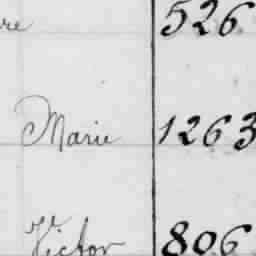 re 526
Marie 1263
Victor 806